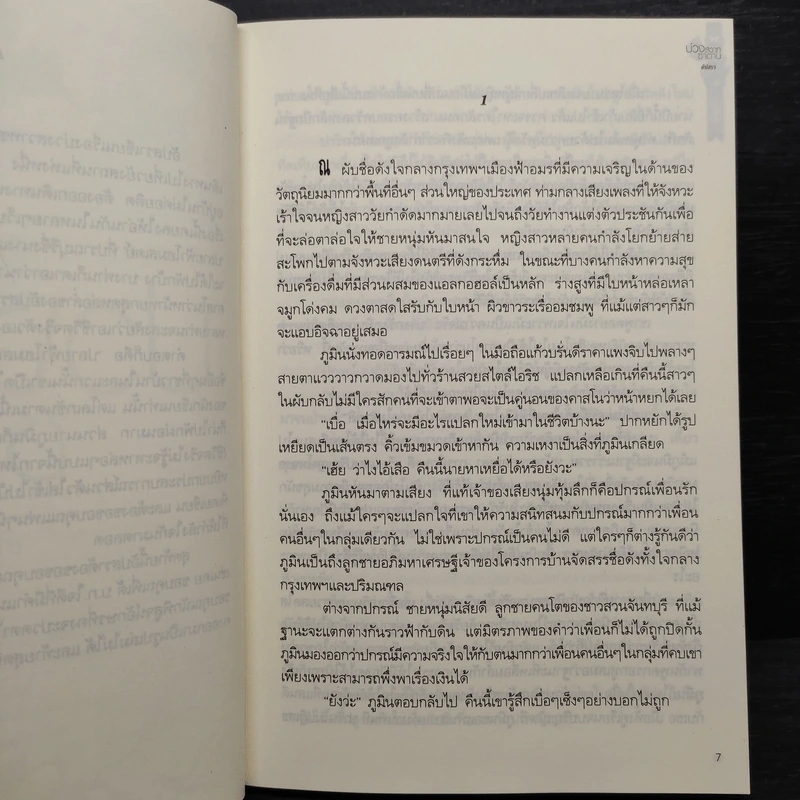 บ่วงสวาท
ซาตาน
1
ณ ผับชื่อดังใจกลางกรุงเทพฯเมืองฟ้าอมรที่มีความเจริญในด้านของ
วัตถุนิยมมากกว่าพื้นที่อื่นๆ ส่วนใหญ่ของประเทศ ท่ามกลางเสียงเพลงที่ให้จังหวะ
เร้าใจจนหญิงสาววัยกำดัดมากมายเลยไปจนถึงวัยทำงานแต่งตัวประชันกันเพื่อ
ที่จะล่อตาล่อใจให้ชายหนุ่มหันมาสนใจ หญิงสาวหลายคนกำลังโยกย้ายส่าย
สะโพกไปตามจังหวะเสียงดนตรีที่ดังกระหึ่ม ในขณะที่บางคนกำลังหาความสุข
กับเครื่องดื่มที่มีส่วนผสมของแอลกอฮอล์เป็นหลัก ร่างสูงที่มีใบหน้าหล่อเหลา
จมูกโด่งคม ดวงตาสดใสรับกับใบหน้า ผิวขาวระเรื่ออมชมพู ที่แม้แต่สาวๆก็มัก
จะแอบอิจฉาอยู่เสมอ
ภูมินนั่งทอดอารมณ์ไปเรื่อยๆ ในมือถือแก้วบรั่นดีราคาแพงจิบไปพลางๆ
สายตาแวววาวกวาดมองไปทั่วร้านสวยสไตล์ไอริช แปลกเหลือเกินที่คืนนี้สาวๆ
ในผับกลับไม่มีใครสักคนที่จะเข้าตาพอจะเป็นคู่นอนของคาสโนว่าหน้าหยกได้เลย
"เบื่อ เมื่อไหร่จะมีอะไรแปลกใหม่เข้ามาในชีวิตบ้างนะ" ปากหยักได้รูป
เหยียดเป็นเส้นตรง คิ้วเข้มขมวดเข้าหากัน ความเหงาเป็นสิ่งที่ภูมินเกลียด
"เฮ้ย ว่าไงไอ้เสือ คืนนี้นายหาเหยื่อได้หรือยังวะ"
ภูมินหันมาตามเสียง ที่แท้เจ้าของเสียงนุ่มทุ้มลึกก็คือปกรณ์เพื่อนรัก
นั่นเอง ถึงแม้ใครๆจะแปลกใจที่เขาให้ความสนิทสนมกับปกรณ์มากกว่าเพื่อน
คนอื่นๆในกลุ่มเดียวกัน ไม่ใช่เพราะปกรณ์เป็นคนไม่ดี แต่ใครๆก็ต่างรู้กันดีว่า
ภูมินเป็นถึงลูกชายอภิมหาเศรษฐีเจ้าของโครงการบ้านจัดสรรชื่อดังทั้งใจกลาง
กรุงเทพฯและปริมณฑล
ต่างจากปกรณ์ ชายหนุ่มนิสัยดี ลูกชายคนโตของชาวสวนจันทบุรี ที่แม้
ฐานะจะแตกต่างกันราวฟ้ากับดิน แต่มิตรภาพของคำว่าเพื่อนก็ไม่ได้ถูกปิดกั้น
ภูมินมองออกว่าปกรณ์มีความจริงใจให้กับตนมากกว่าเพื่อนคนอื่นๆในกลุ่มที่คบเขา
เพียงเพราะสามารถพึ่งพาเรื่องเงินได้
"ยังว่ะ" ภูมินตอบกลับไป คืนนี้เขารู้สึกเบื่อๆเซ็งๆอย่างบอกไม่ถูก
7